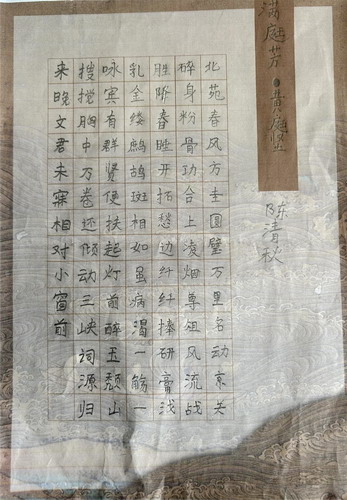 满庭芳·黄庭坚
陈清秋
北苑春风方圭圆璧万里名动京关
碎身粉骨功合上凌烟尊俎风流战
胜降春睡开拓愁边纤纤捧研膏浅
乳金缕鹧鸪斑相如虽病渴一觞一
咏宾有群贤便扶起灯前醉五颓山
搜搅胸中万卷还倾动三峡词源归
来晚文君未寐相对小窗前